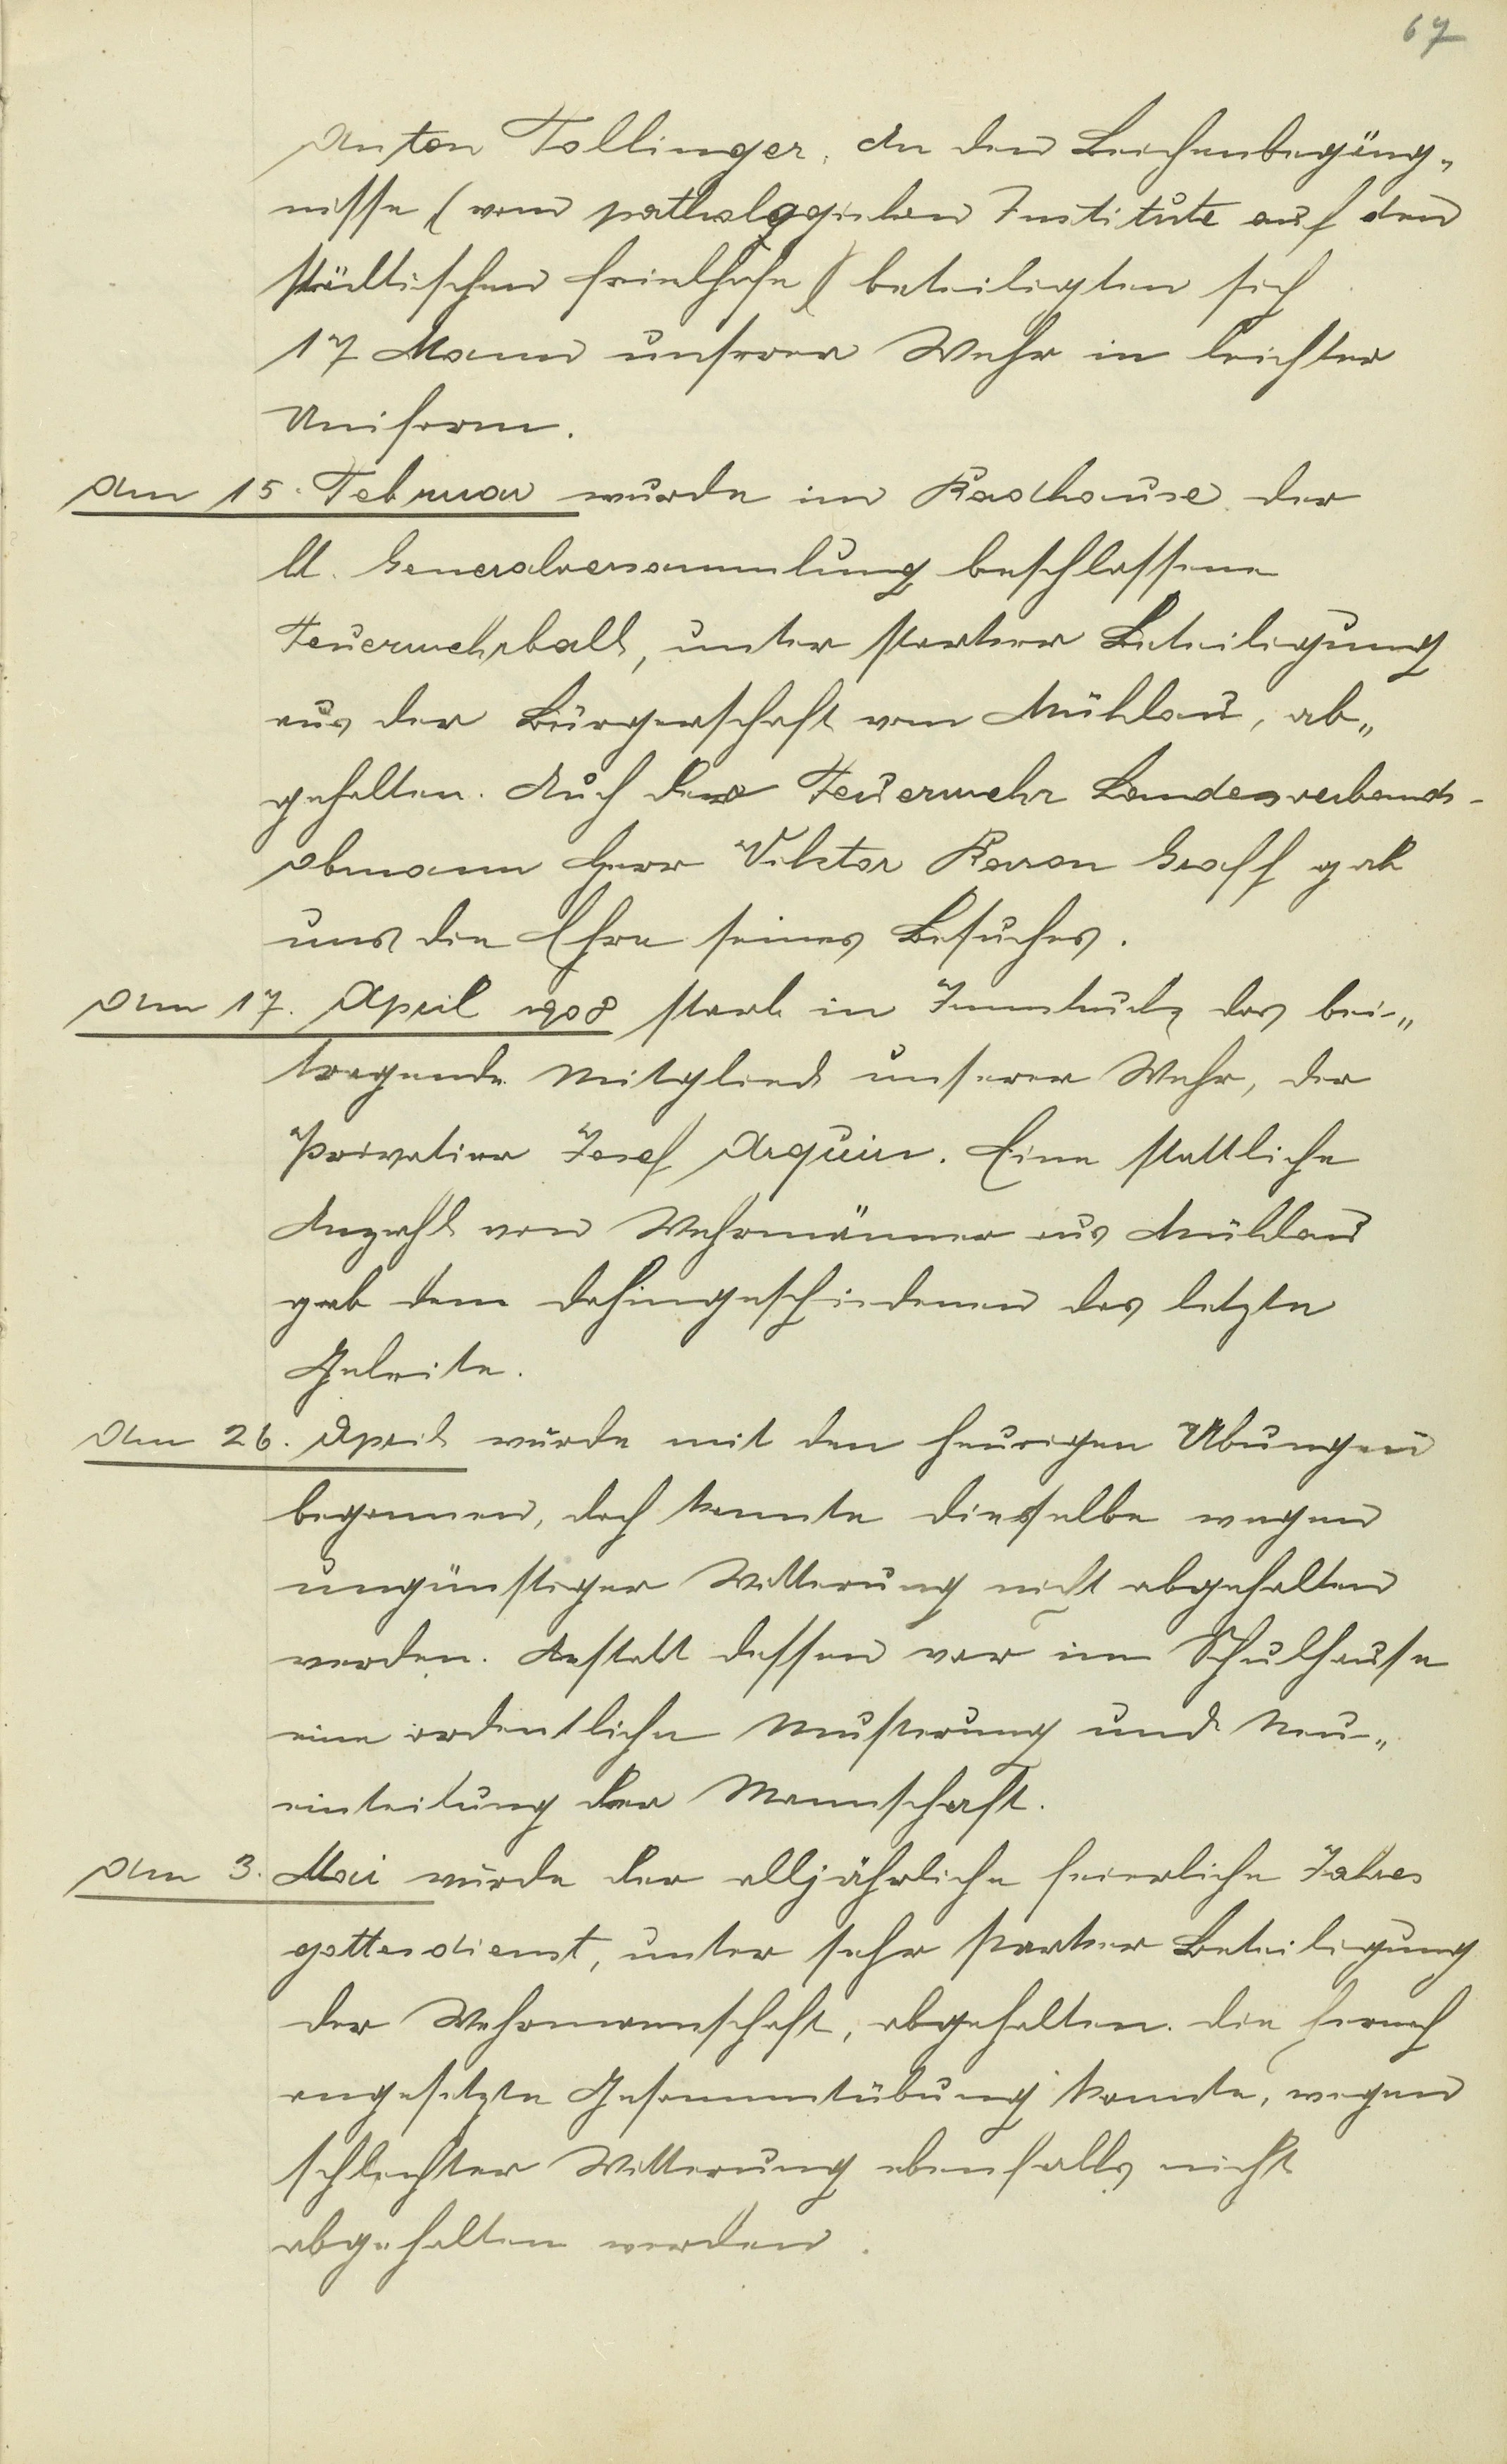 67
Anton Tollinger. An den Leichenbegäng„
nisse (vom pathologischen Institute auf den
städtischen Friedhofe) beteiligten sich
17 Mann unserer Wehr in leichter
Uniform.
Am 15. Februar wurde im Badhause der
lt. Generalversammlung beschlossene
Feuerwehrball, unter starker Beteiligung
aus der Bürgerschaft von Mühlau, ab„
gehalten. Auch der Feuerwehr Landesverbands-
obmann Herr Viktor Baron Graff gab
uns die Ehre seines Besuches.
Am 17. April 1908 starb in Innsbruck das bei„
tragende Mitglied unserer Wehr, der
Privatier Josef Arquin. Eine stattliche
Anzahl von Wehrmänner aus Mühlau
gab dem dahingeschiedenen das letzte
Geleite.
Am 26. April wurde mit den heurigen Übungen
begonnen, doch konnte dieselbe wegen
ungünstiger Witterung nicht abgehalten
werden. Anstatt dessen war im Schulhause
eine ordentliche Musterung und Neu„
einteilung der Mannschaft.
Am 3. Mai wurde der alljährliche feierliche Jahres
gottesdienst, unter sehr starker Beteiligung
der Wehrmannschaft, abgehalten. Die hernach
angesetzte Gesammtübung konnte, wegen
schlechter Witterung ebenfalls nicht
abgehalten werden.